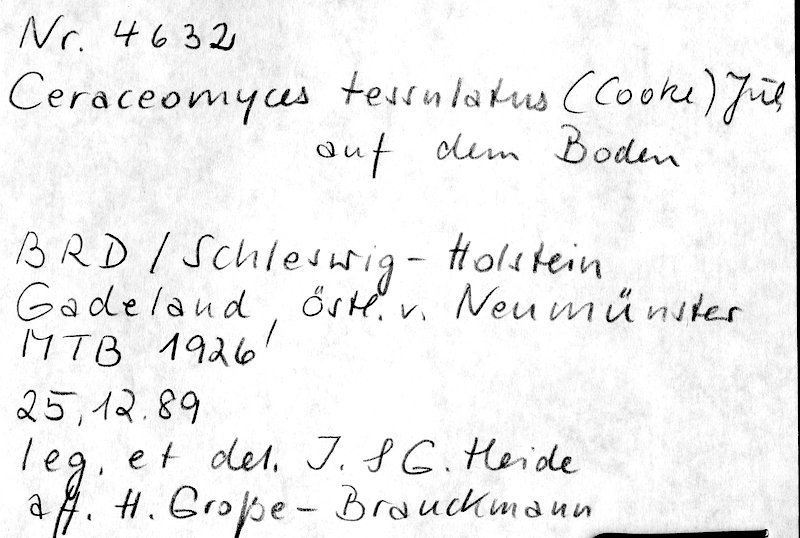 Nr. 4632
Ceraceomyces tessulatus (Cooke) Jül,
auf dem Boden
BRD / Schleswig-Holstein
Gadeland, östl. v. Neumünster
MTB 1926
25.12.89
leg. et det. J. & G. Heide
aff. H. Große-Brauckmann